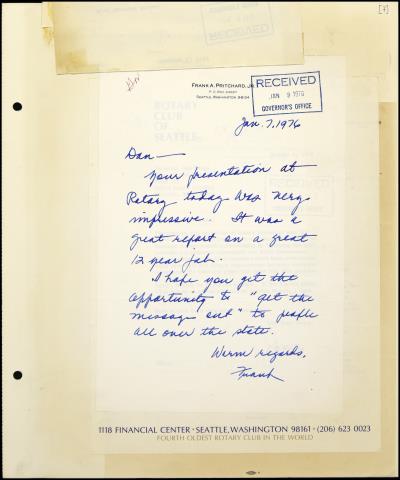 [4]
RECEIVED
JAN 9 1976
GOVERNOR'S OFFICE
RECEIVED
FRANK A. PRITCHARD, JR.
SEATTLE, WASHINGTON 98124
ROTARY
CLUB
OF
SEATTLE
Jan. 7, 1976
Dan—
Your presentation at
Rotary today was very
impressive. It was a
great report on a great
12 year job.
I hope you get the
opportunity to "get the
message out" to people
all over the state.
Warm regards,
Frank
1118 FINANCIAL CENTER · SEATTLE, WASHINGTON 98161 · (206) 623 0023
FOURTH OLDEST ROTARY CLUB IN THE WORLD